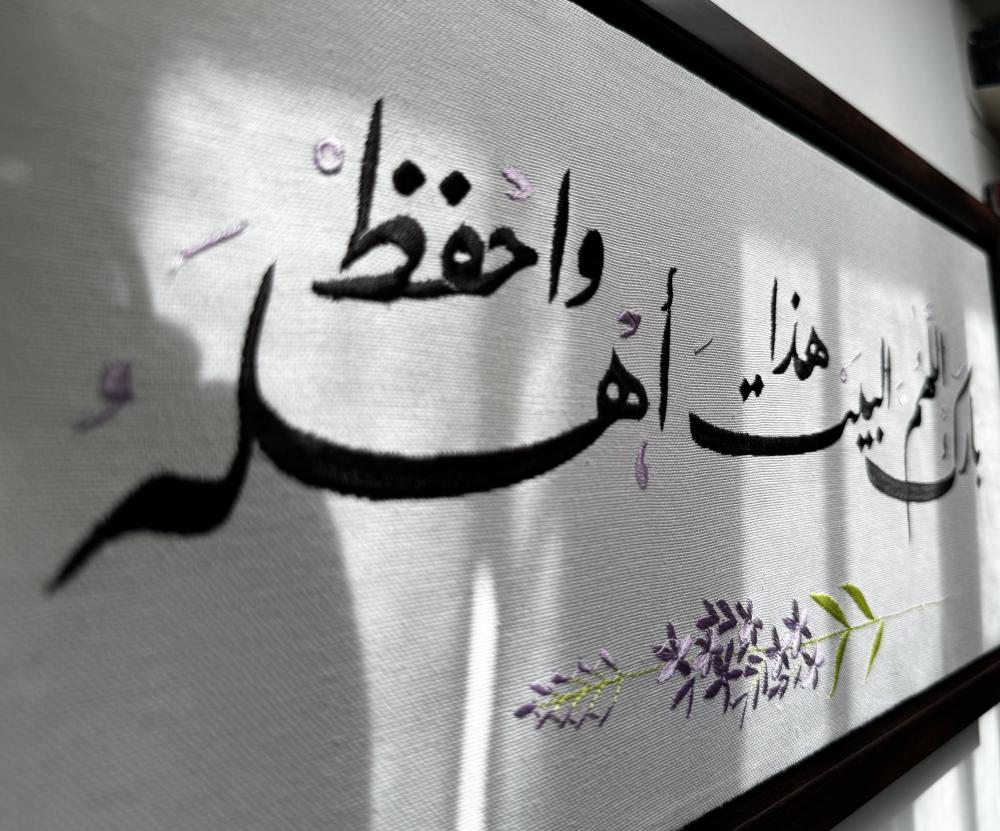 اللهم بارك هذا البيت واحفظ أهله